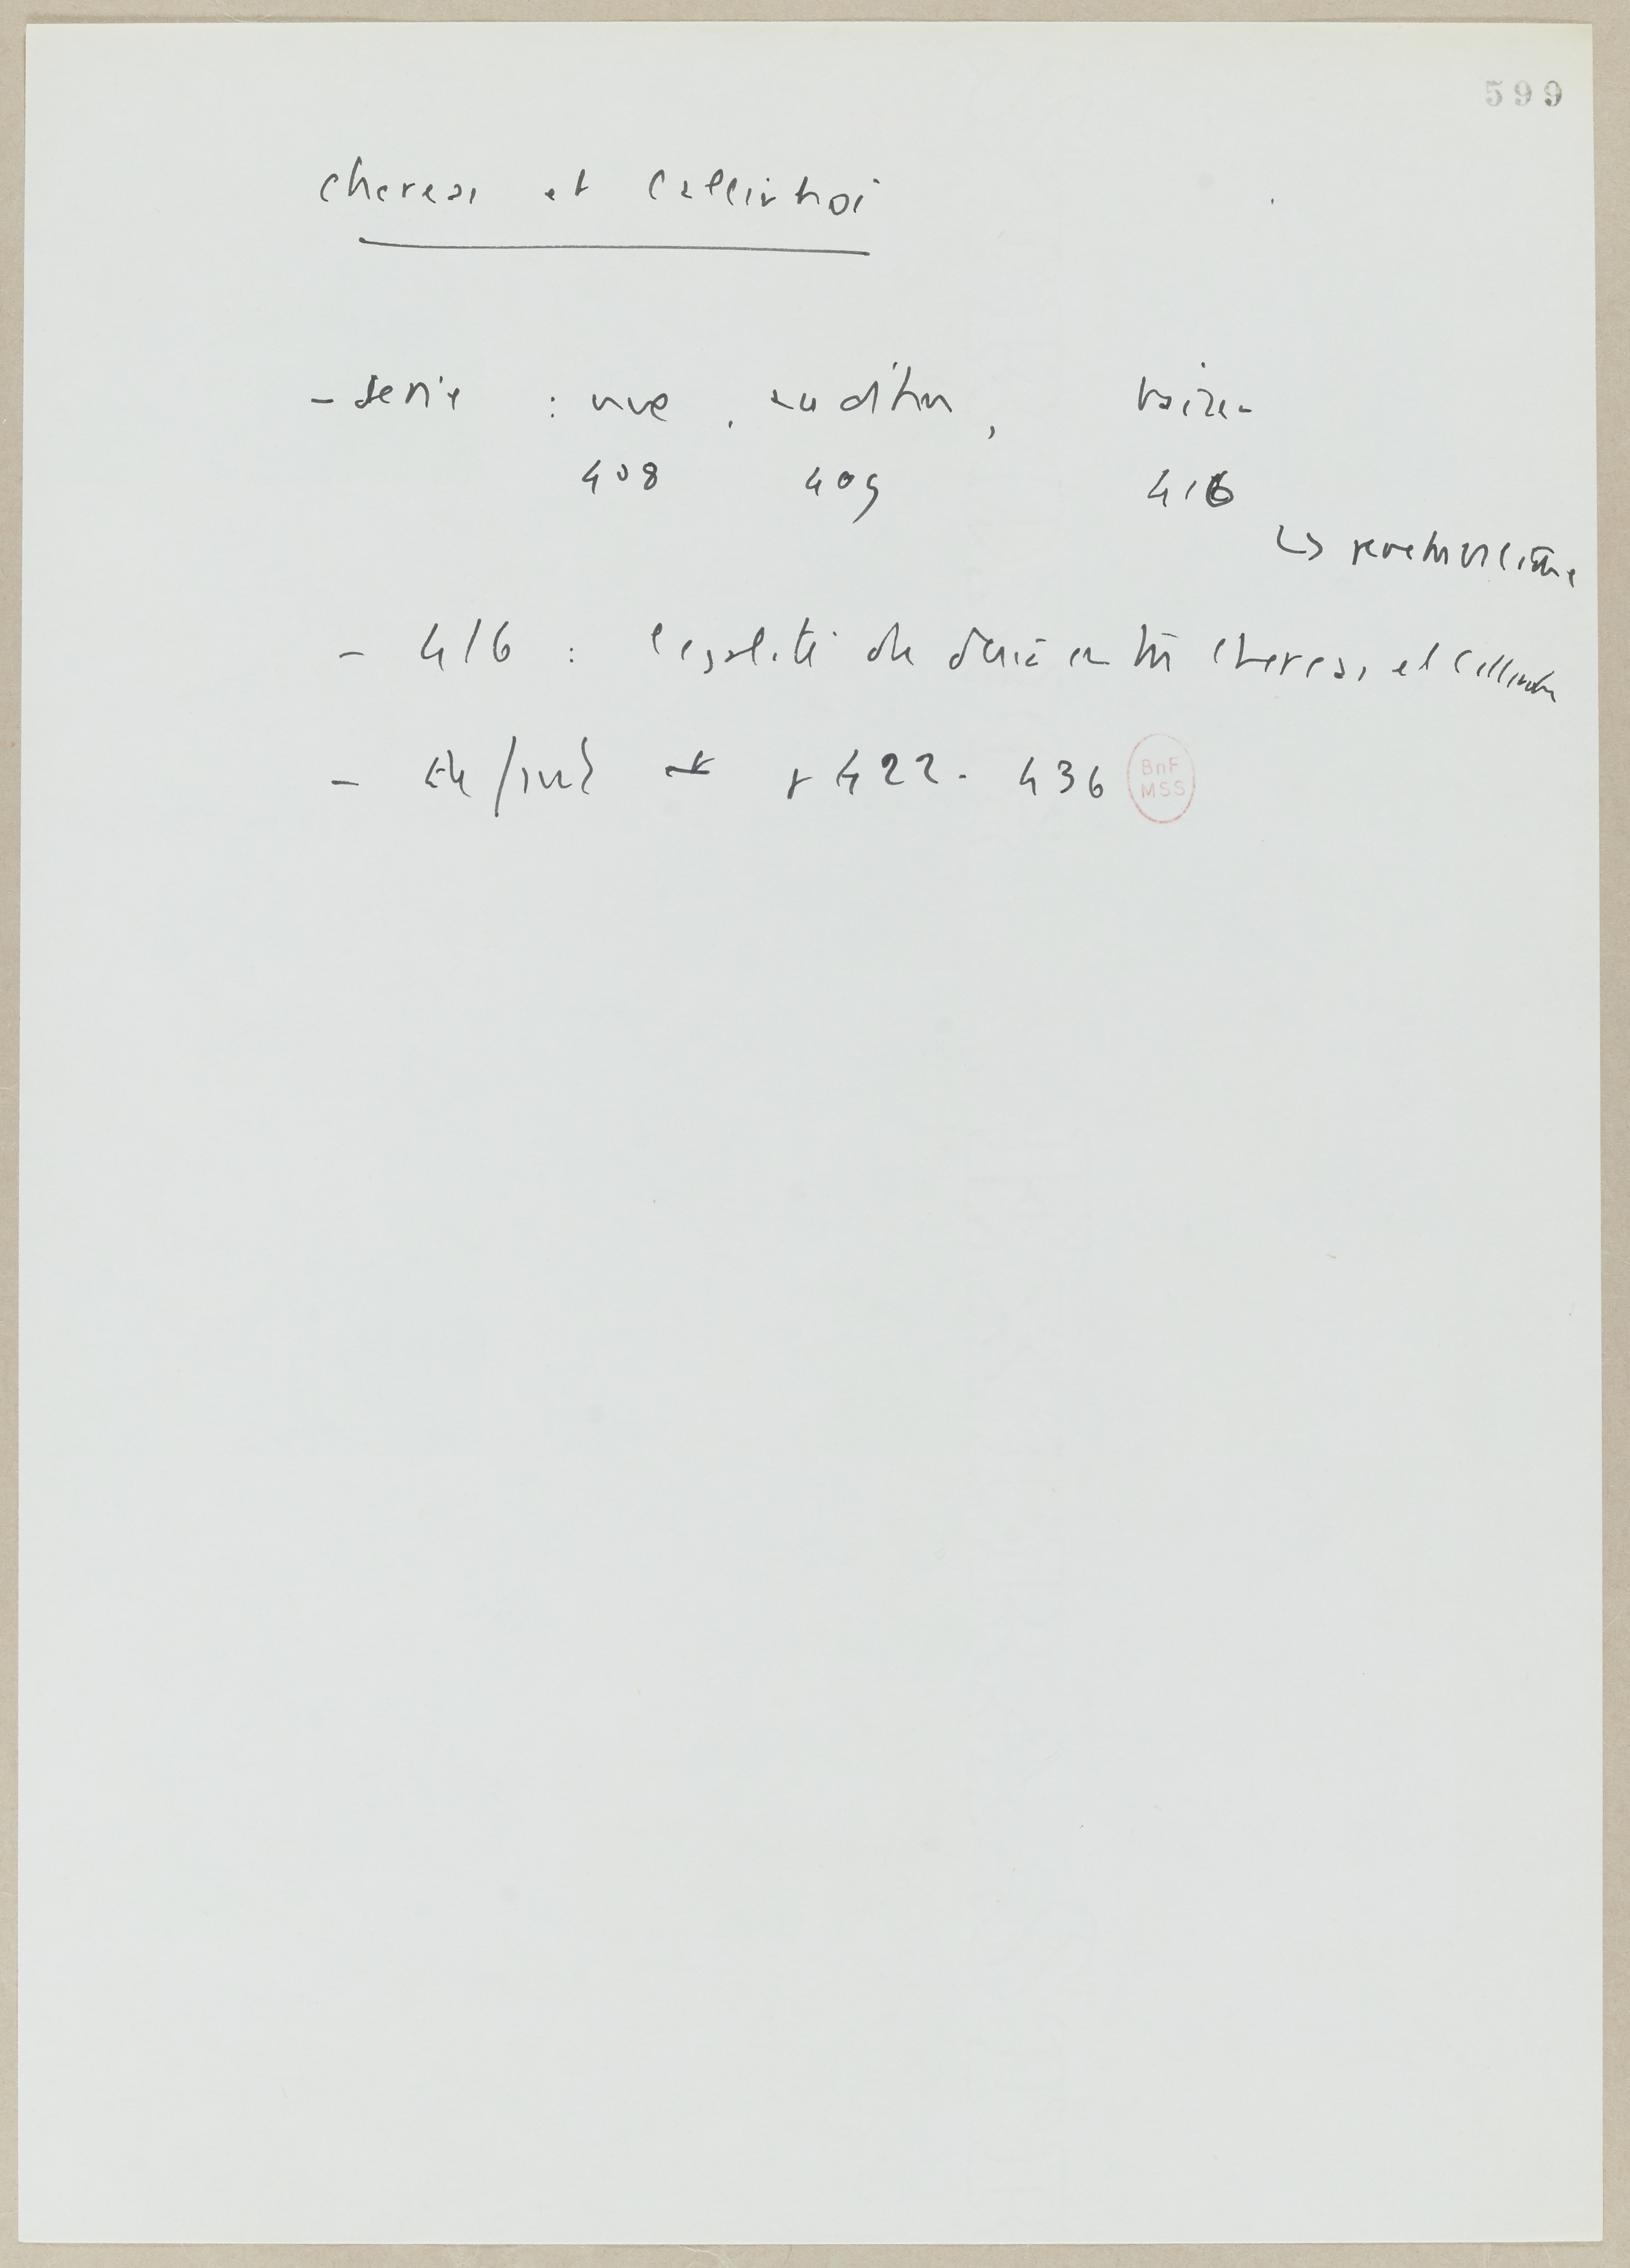 599
Chereas et Callirhoé
- Serie : vue, audition, baiser
408 409 416
↳ reconnaissance
- 416 : l'égalité de désir entre Chereas et Callirhoé
- 422. 436
BnF
MSS